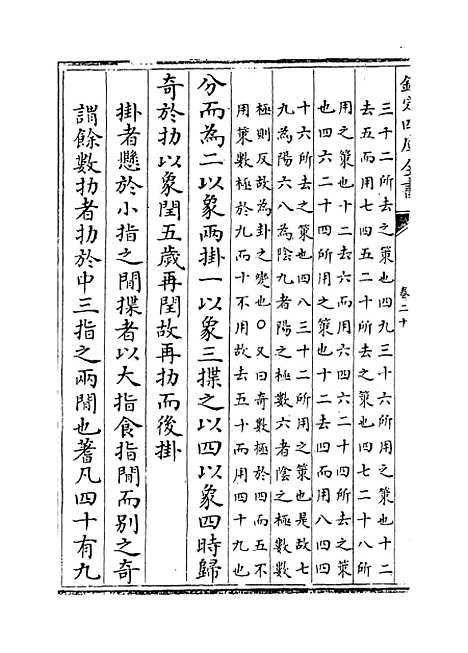 欽定四庫全書
卷二十
三千二所去之策也四九三十六所用之策也十二
去五而用七四五二十所去之策也四七二十八所
用之策也十二去六而用六四六二十四所去之策
也四六二十四所用之策也十二去四而用八四四
十六所去之策也四八三十二所用之策也是故七
九為陽六八為陰九者陽之極數六者陰之極數數
極則反故為卦之變也〇又曰奇數極於四而五不
用策數極於九而十不用故去五十而用四十九也
分而為二以象兩掛一以象三揲之以四以象四時歸
奇於扐以象閏五歲再閏故再扐而後掛
掛者懸於小指之間揲者以大指食指間而別之奇
謂餘數扐者扐於中三指之兩間也蓍凡四十有九